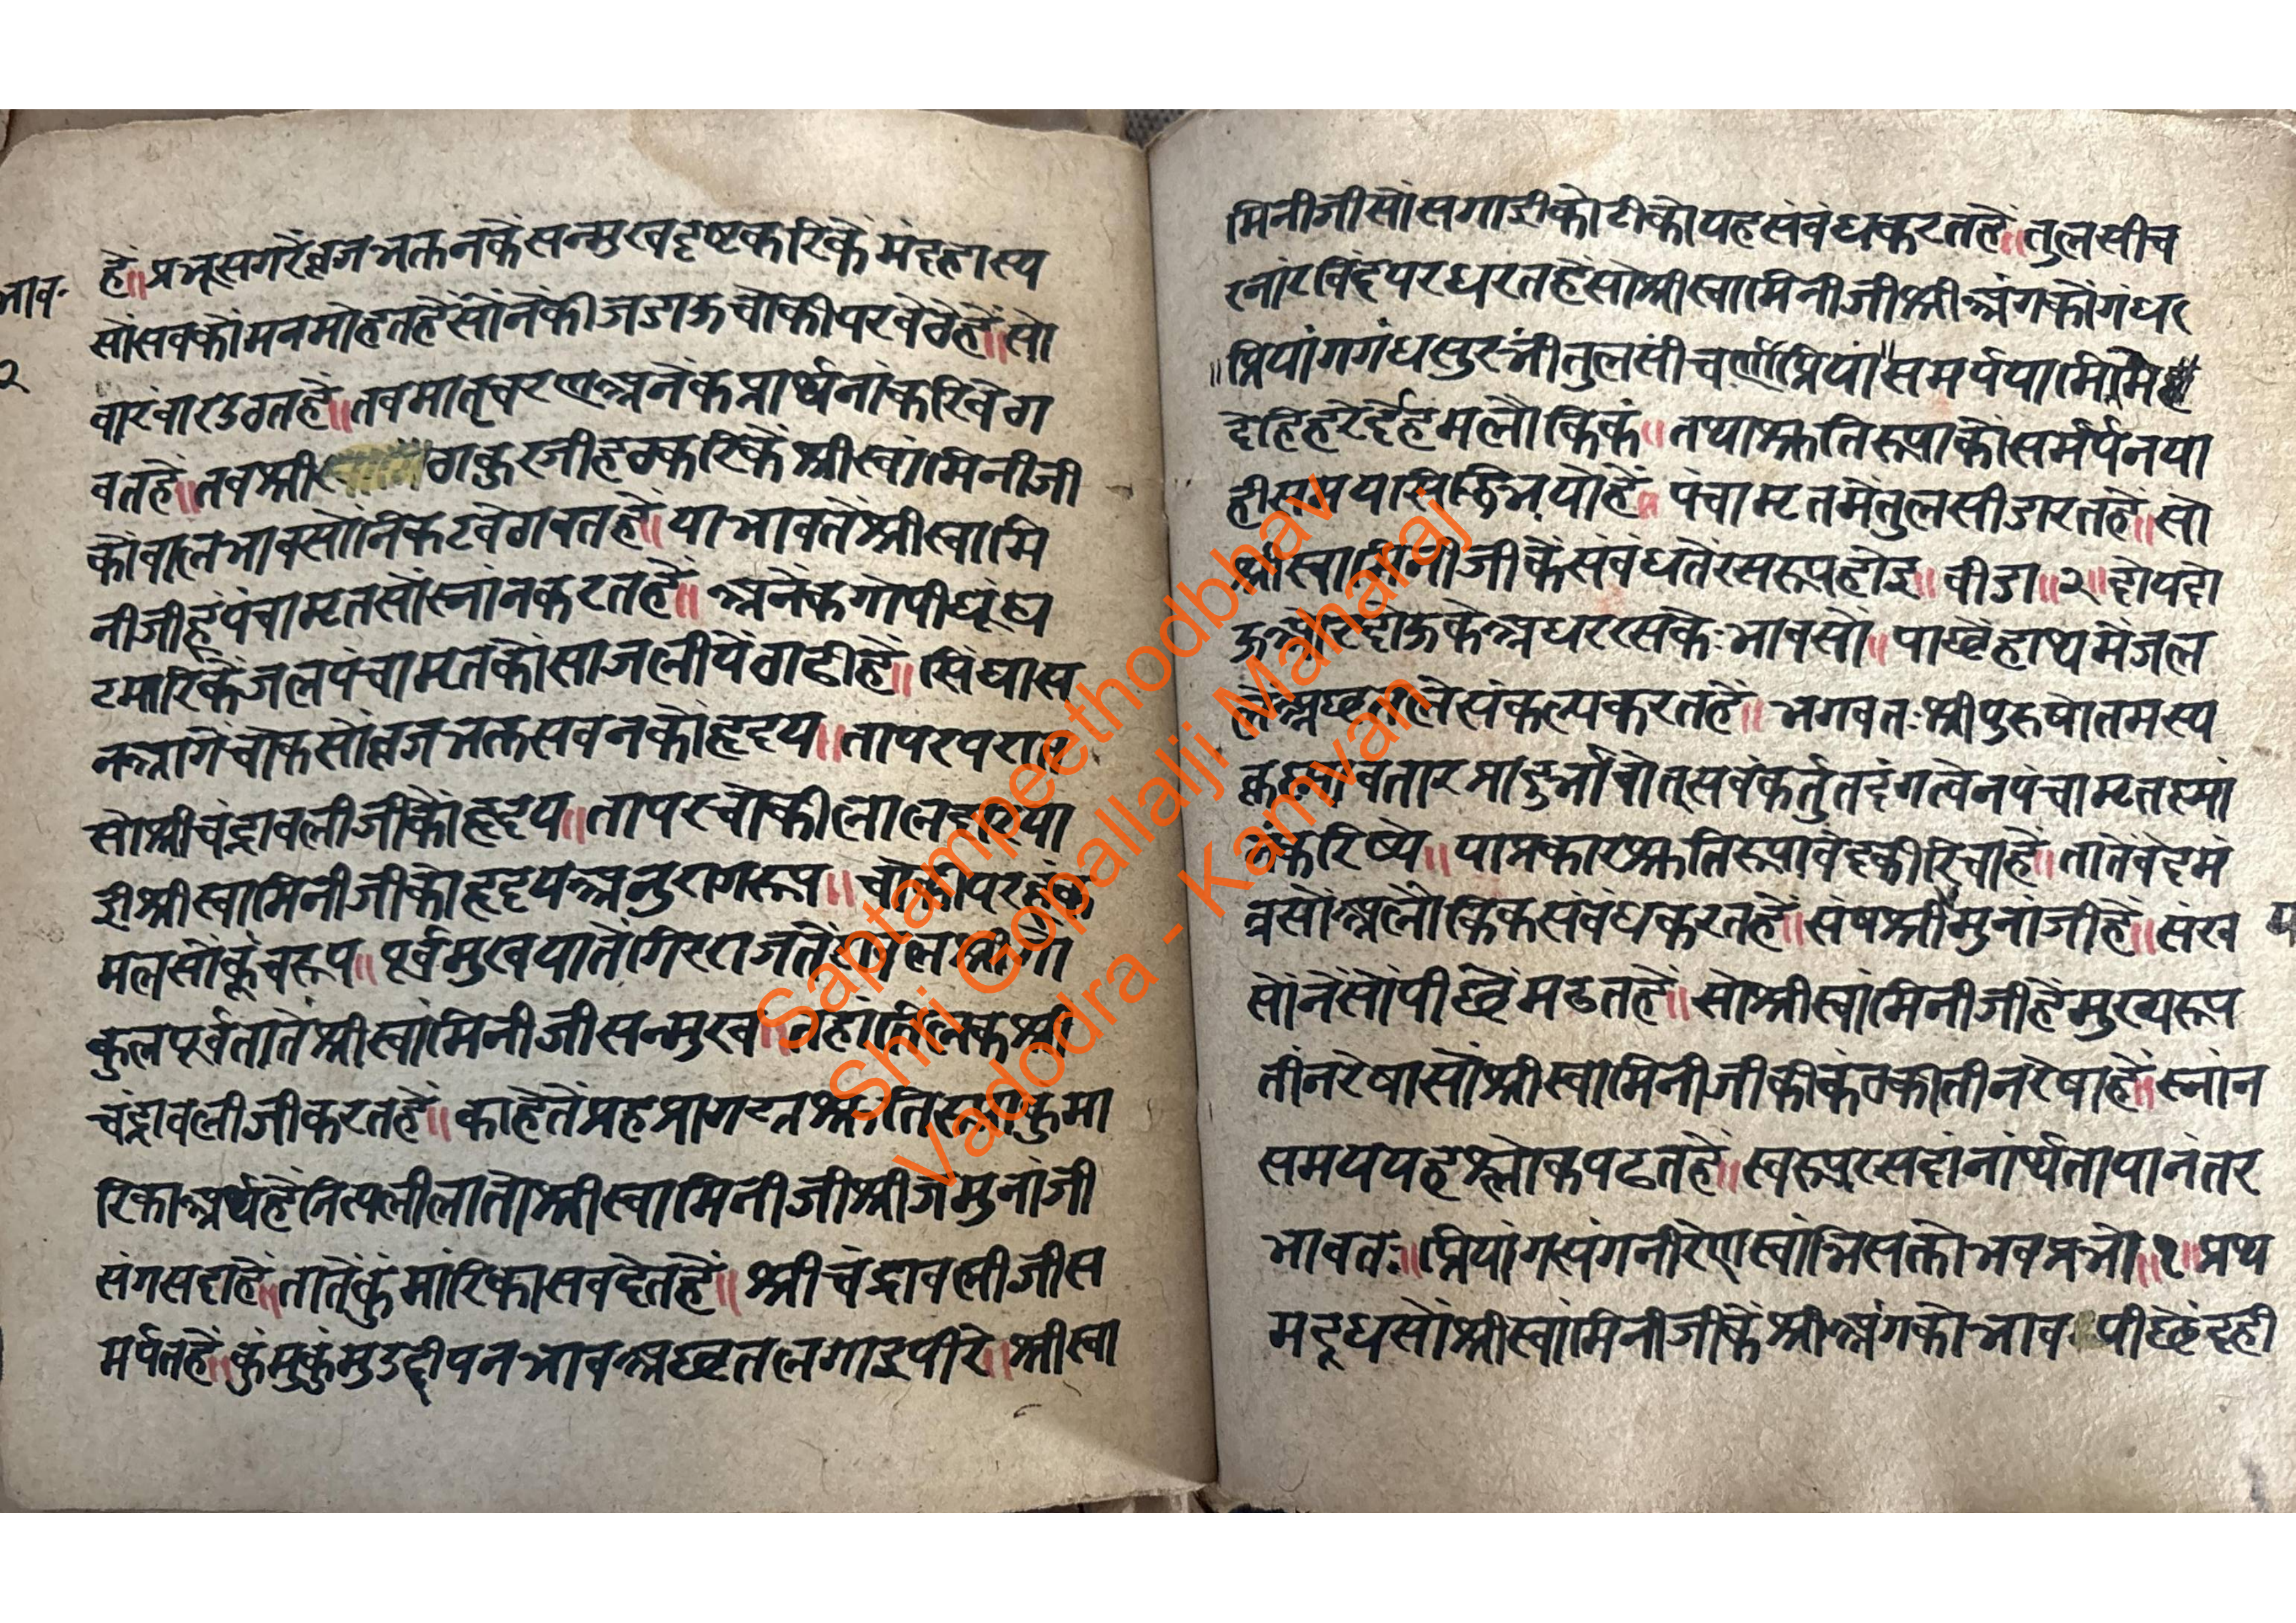 भाव॰
२
हैं॥ प्रभू सगरे व्रजभक्तनके सन्मुख दृष्ट करिकें मंदहास्य
सों सबकों मन मोहतहैं सोंनेंकी जडाऊ चोकी पर बेठेहैं॥ सो
वारंवार उठतहैं॥ तब मातृचरण अनेक प्रार्थनां करि बेठा
वतहें॥ तब श्री ठाकुरजी हठ करिकें श्रीस्वांमिनीजी
कों बालभावसों निकट बेठावतहें॥ या भावतें श्रीस्वामि
नीजीहूं पंचामृतसों स्नांन करतहें॥ अनेक गोपी घूंघ
ट मारिकें जल पंचामृतकों साज लीयें ठाढीहें॥ सिंघास
न आगें चोक सों व्रजभक्त सबनको हृदय॥ तापर परात
सो श्रीचंद्रावलीजीकों हृदय॥ तापर चोकी लाल दरिया
ई श्रीस्वामिनीजीको हृदय अनुरागरूप॥ चोकी पर
मल सों कूचरूप॥ पूर्व मुख यातें गिरराजतें श्रीगो
कुल पूर्व तातें श्रीस्वांमिनीजी सन्मुख॥ तहां तिलक श्री
चंद्रावलीजी करतहें॥ काहेतें प्रह प्रागट्य श्रुतिरूपा कुमा
रिका अर्थहें नित्यलीलातो श्रीस्वामिनीजी श्रीजमुनांजी
संग सदाहें॥ तातें कुंमारिका सब देतहें॥ श्रीचंद्रावलीजी स
मर्पतहें॥ कुंमकुंम उद्दीपन भाव अछत लगाइ पीरे॥ श्रीस्वा
मिनीजीसों सगाईको टीको यह संबंध करतहें॥ तुलसी च
रनांरविंद पर धरतहें सो श्रीस्वामिनीजी श्रीअंगकों गंध
॥प्रियांगगंधसुरभी तुलसी चर्णप्रिया॥ समर्पयामि मे
देहि हरे र्देहमलौकिकं॥ तथा श्रुतिरूपाकों समर्पन या
ही समया सिद्धि भयोहें॥ पंचामृतमें तुलसी डारतहें॥ सो
श्रीस्वामिनीजीके संबंधतें रसरूप होइ॥ बीडा॥२॥ दोय दो
ऊ ओर दोऊके अधररसके भावसों॥ पाछें हाथमें जल
ले अछत ले संकल्प करतहें॥ भगवतः श्रीपुरुषोतमस्य
कृष्णावतार प्रादुर्भावोत्सवं कर्तुं तदंगत्वेन पंचामृतस्ना
नं करिष्ये॥ या प्रकार श्रुतिरूपा वेदकी रिचाहें॥ तातें वेदमं
त्रसों अलौकिक संबंध करतहें॥ संष श्रीमुनांजीहें॥ संख
सोंनेंसों पीछें मढतहें॥ सो श्रीस्वांमिनीजीहें मुख्यरूप
तीन रेषा सों श्रीस्वामिनीजीकी कंठकी तीन रेषाहें॥ स्नांन
समय यह श्लोक पढतहें॥ स्वरूपरसदांनार्थ तापानंतर
भावतः॥ प्रियांगसंगनीरेण स्वाभिसक्तो भव प्रभो॥१॥ प्रथ
म दूधसों श्रीस्वांमिनीजीकें श्रीअंगको भाव पीछें दही